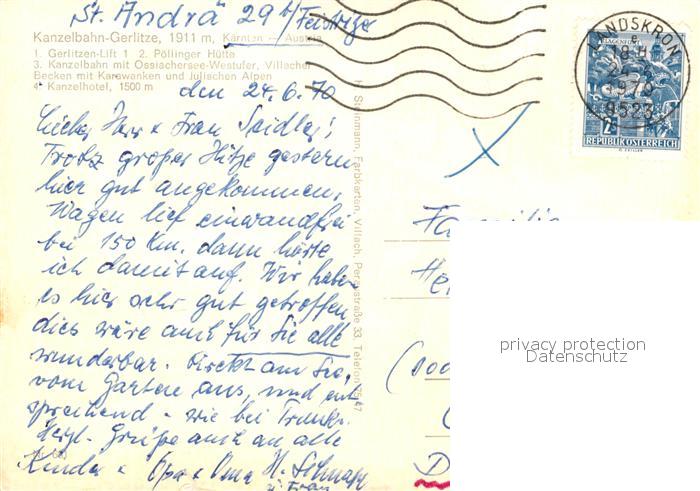 St. Andrä 29 b/Feistritz
Kanzelbahn-Gerlitze, 1911 m, Kärnten — Austria
1. Gerlitzen-Lift 1 2. Pöllinger Hütte
3. Kanzelbahn mit Ossiachersee-Westufer, Villacher
Becken mit Karawanken und Julischen Alpen
4. Kanzelhotel, 1500 m
den 24.6.70
Lieber Herr & Frau Seidler!
Trotz großer Hitze gestern
hier gut angekommen,
Wagen lief einwandfrei
bei 150 Km. dann hörte
ich damit auf. Wir haben
es hier sehr gut getroffen
dies wäre auch für Sie alle
wunderbar. Direkt am See,
vom Garten aus, und ent
sprechend - wie bei
Herzl. Grüße auch an alle
Kinder & Opa & Oma H.
u. Frau
H. Steinmann, Farbkarten, Villach, Perau­straße 33, Telefon
LANDSKRON
e
24.6.
1970
9523
KLAGENFURT
2
REPUBLIK ÖSTERREICH
Familie
He
(800
D
privacy protection
Datenschutz